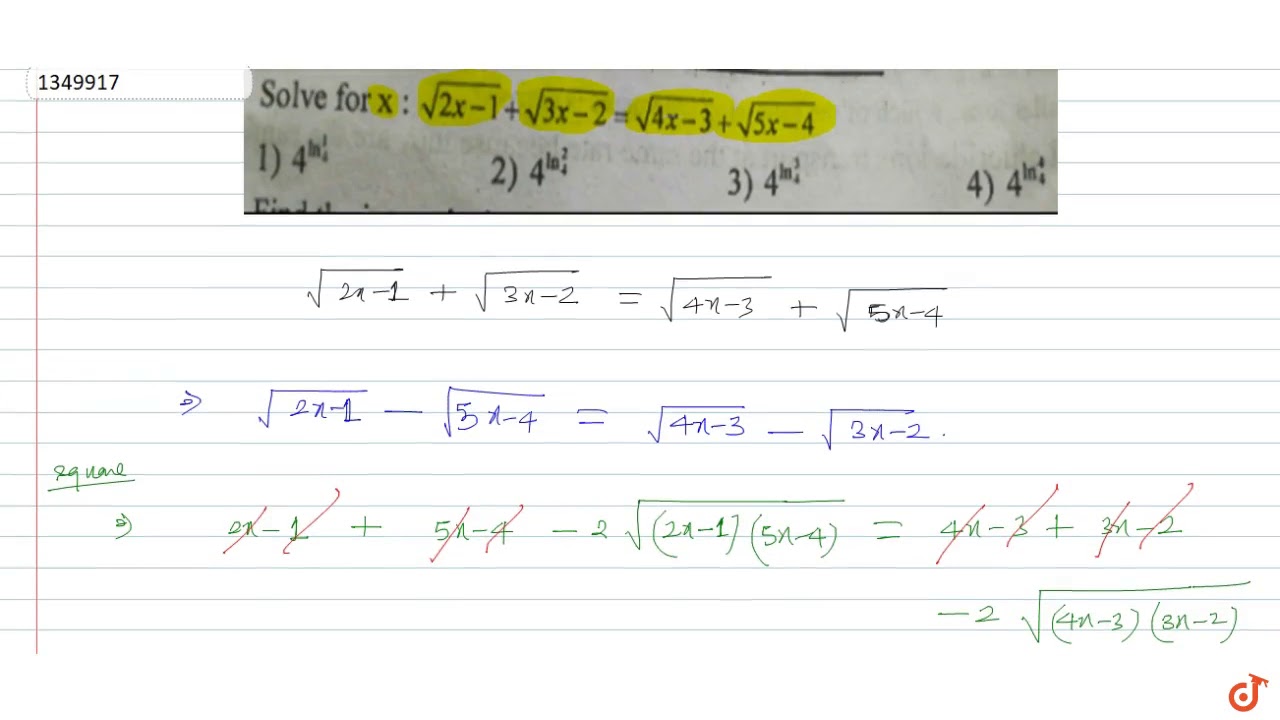 1349917
Solve for x : √2x−1 + √3x−2 = √4x−3 + √5x−4
1) 4^ln 2) 4^ln 3) 4^ln 4) 4^ln
√2x−1 + √3x−2 = √4x−3 + √5x−4
⇒ √2x−1 − √5x−4 = √4x−3 − √3x−2 .
square
⇒ 2x−1 + 5x−4 − 2 √(2x−1)(5x−4) = 4x−3 + 3x−2
− 2 √(4x−3)(3x−2)